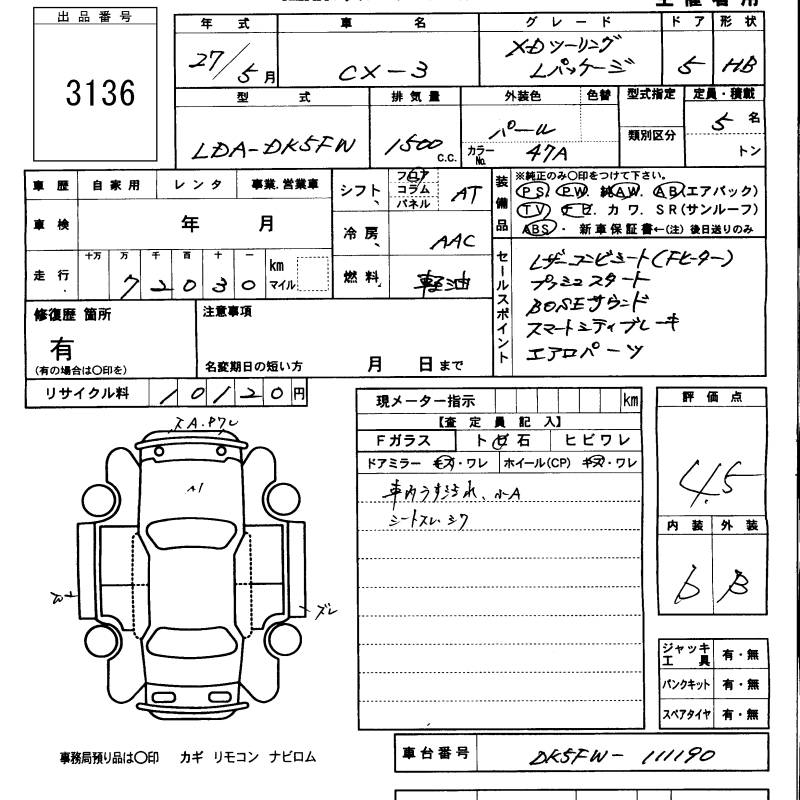 出品番号
3136
年式 車名 グレード ドア 形状
27/5月 CX-3 XDツーリング Lパッケージ 5 HB
型式 排気量 外装色 色替 型式指定 定員・積載
LDA-DK5FW 1500 c.c. パール 類別区分 5 名
カラーNo. 47A トン
車歴 自家用 レンタ 事業.営業車
車検 年 月
走行 十万 万 千 百 十 一 km マイル
7 2 0 3 0
シフト フロア コラム パネル AT
冷房 AAC
燃料 軽油
装備品
※純正のみ〇印をつけて下さい。
PS PW 純AW. AB(エアバック)
TV ナビ. カワ. SR(サンルーフ)
ABS ・ 新車保証書←(注) 後日送りのみ
セールスポイント
レザーコンビシート(Fヒーター)
プッシュスタート
BOSEサウンド
スマートシティブレーキ
エアロパーツ
修復歴 箇所
有
(有の場合は〇印を)
注意事項
名変期日の短い方 月 日まで
リサイクル料 10120円
現メーター指示 km
【査定員記入】
Fガラス トビ石 ヒビワレ
ドアミラー キズ・ワレ ホイール(CP) キズ・ワレ
車内うすごれ、小A
シートスレ シワ
評価点
4.5
内装 外装
b B
A1
ズレ
ジャッキ工具 有・無
パンクキット 有・無
スペアタイヤ 有・無
事務局預り品は〇印 カギ リモコン ナビロム
車台番号 DK5FW-111190